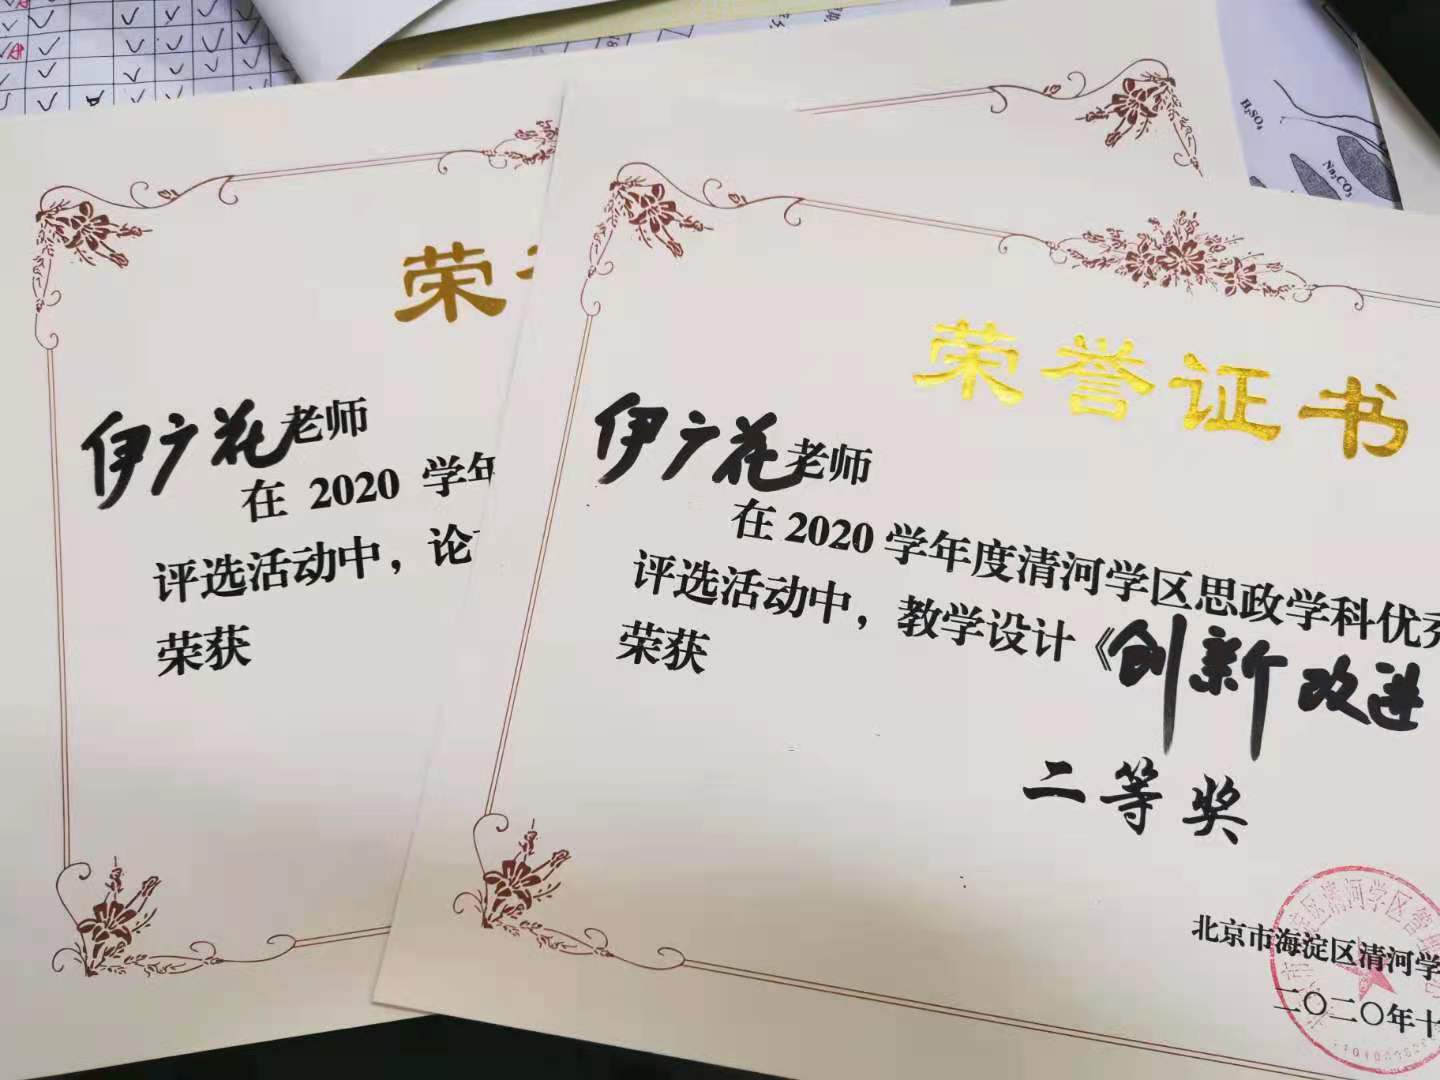 荣
伊广花老师
在 2020 学年
评选活动中，论
荣获
荣誉证书
伊广花老师
在 2020 学年度清河学区思政学科优
评选活动中，教学设计《创新改进
荣获
二等奖
北京市海淀区清河学
二〇二〇年十
清河学区管理
H₂SO₄
Na₂CO₃